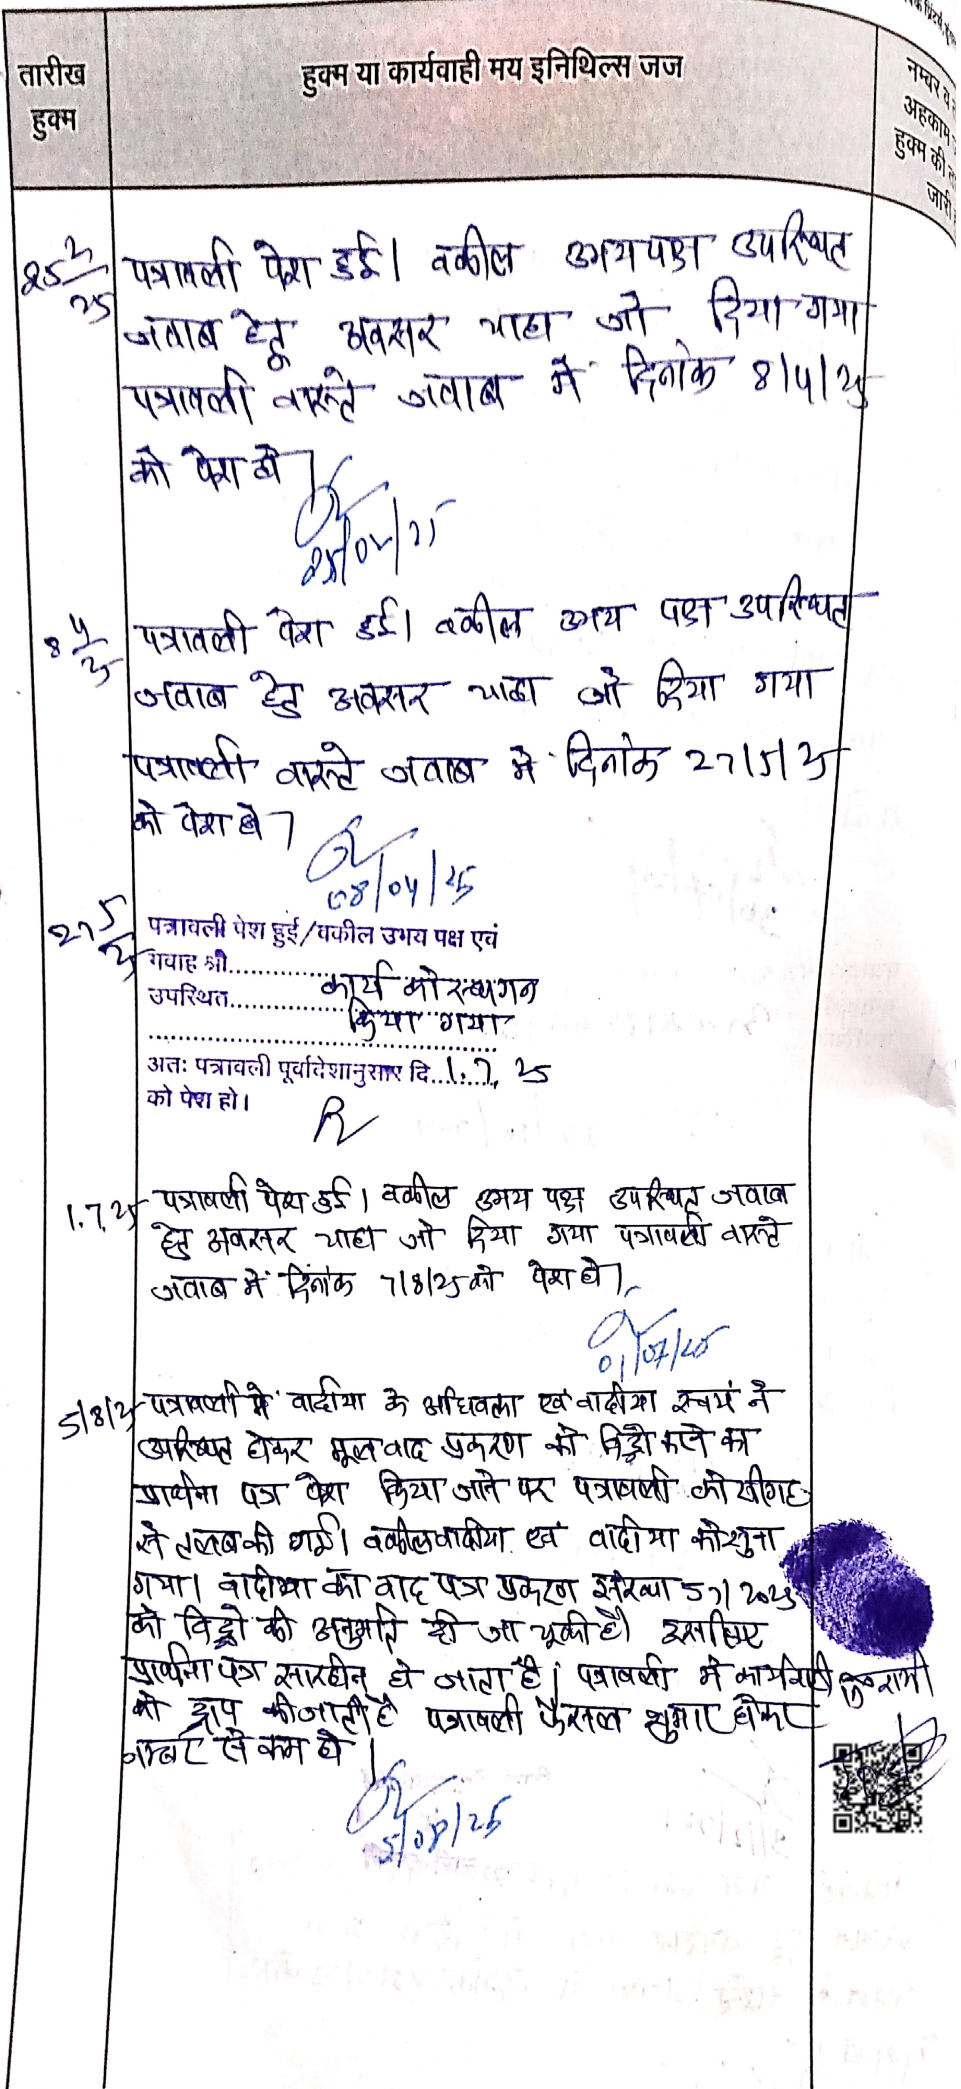 तारीख
हुक्म
हुक्म या कार्यवाही मय इनिथिल्स जज
नम्बर व
अहकाम
हुक्म की
जारी
25/2/25 पत्रावली पेश हुई। वकील उभयपक्ष उपस्थित
जवाब हेतु अवसर चाहा जो दिया गया
पत्रावली वास्ते जवाब में दिनांक 8/4/25
को पेश हो।
25/02/25
8/4/25 पत्रावली पेश हुई। वकील उभय पक्ष उपस्थित
जवाब हेतु अवसर चाहा जो दिया गया
पत्रावली वास्ते जवाब में दिनांक 27/5/25
को पेश हो।
08/04/25
27/5/25 पत्रावली पेश हुई/वकील उभय पक्ष एवं
गवाह श्री..................
उपस्थित.......... कार्य को स्थगन
किया गया
अतः पत्रावली पूर्वादेशानुसार दि...1.7.25
को पेश हो।
1.7.25 पत्रावली पेश हुई। वकील उभय पक्ष उपस्थित जवाब
हेतु अवसर चाहा जो दिया गया पत्रावली वास्ते
जवाब में दिनांक 7/8/25 को पेश हो।
01/07/25
5/8/25 पत्रावली में वादीया के अधिवक्ता एवं वादीया स्वयं ने
उपस्थित होकर मूल वाद प्रकरण को विड्रो करने का
प्रार्थना पत्र पेश किया जाने पर पत्रावली को
से तलब की गई। वकील वादीया एवं वादीया को सुना
गया। वादीया का वाद पत्र प्रकरण संख्या 57/2025
को विड्रो की अनुमति दी जा चूकी है। इसलिए
प्रार्थना पत्र सारहीन हो जाता है। पत्रावली में कार्यवाही
को ड्राप की जाती है पत्रावली फैसल शुमार होकर
नम्बर से कम हो।
5/08/25